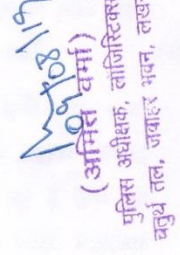 (अमित वर्मा)
पुलिस अधीक्षक, लॉजिस्टिक्स
चतुर्थ तल, जवाहर भवन, लख